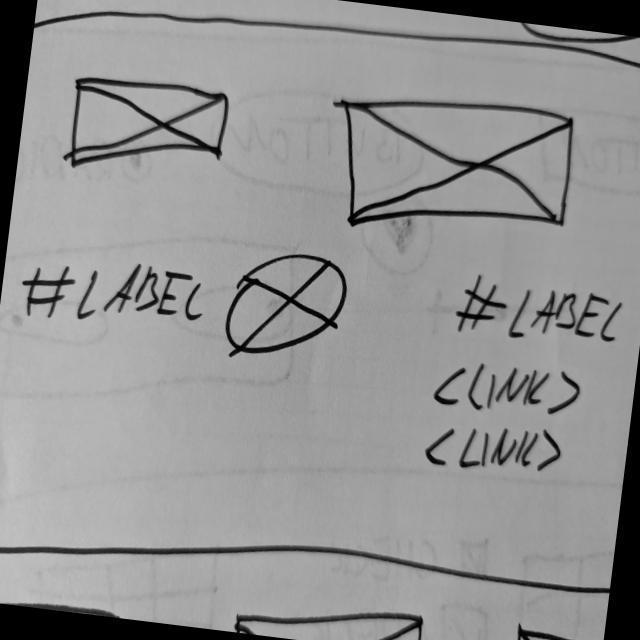 #LABEL
#LABEL
<LINK>
<LINK>